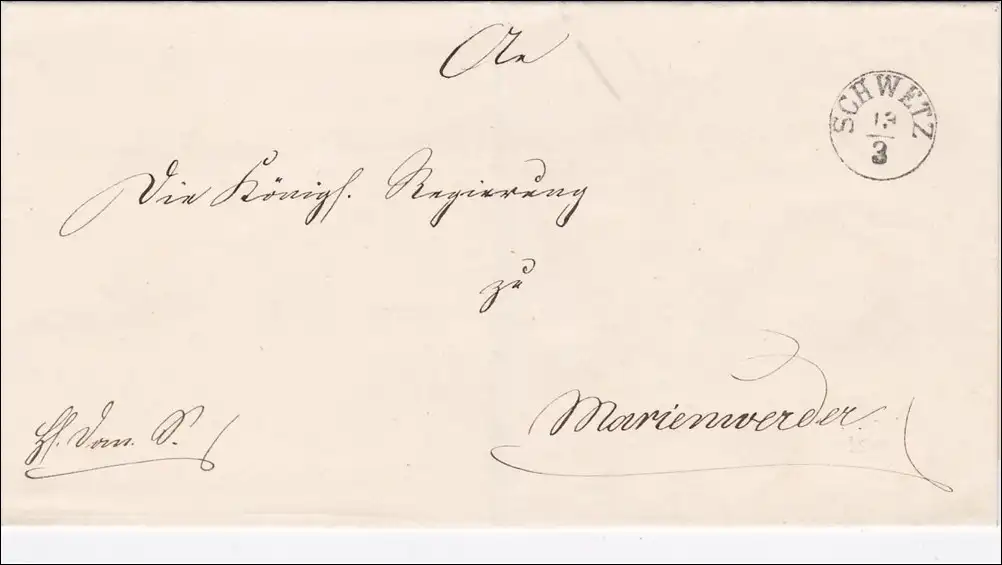 An
SCHWETZ
13
3
Die Königl. Regierung
zu
Marienwerder.
Hl. Dom. S.